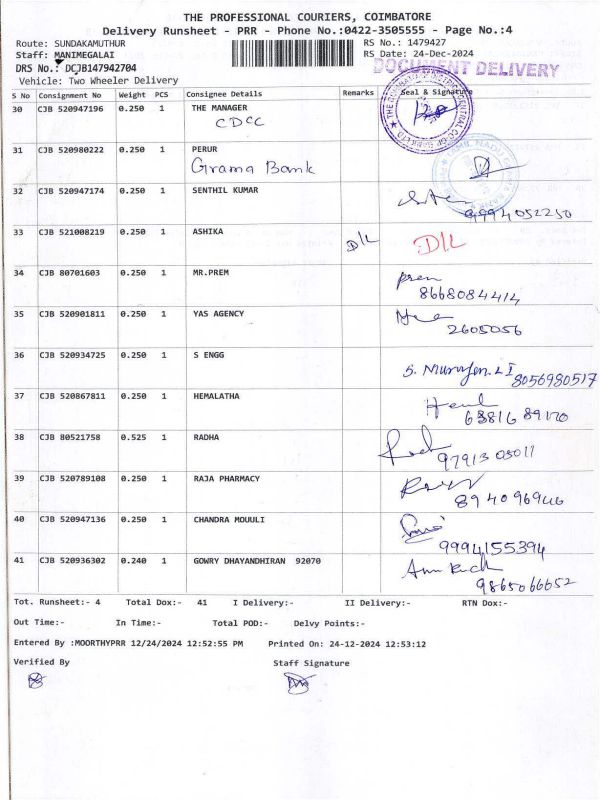 THE PROFESSIONAL COURIERS, COIMBATORE
Delivery Runsheet - PRR - Phone No.:0422-3505555 - Page No.:4
Route: SUNDAKAMUTHUR RS No.: 1479427
Staff: MANIMEGALAI RS Date: 24-Dec-2024
DRS No.: DCJB147942704 DOCUMENT DELIVERY
Vehicle: Two Wheeler Delivery
S No Consignment No Weight PCS Consignee Details Remarks Seal & Signature
30 CJB 520947196 0.250 1 THE MANAGER
CDCC
31 CJB 520980222 0.250 1 PERUR
Grama Bank
32 CJB 520947174 0.250 1 SENTHIL KUMAR
9994052250
33 CJB 521008219 0.250 1 ASHIKA D/L D/L
34 CJB 80701603 0.250 1 MR.PREM prem
8668084414
35 CJB 520901811 0.250 1 YAS AGENCY
2605056
36 CJB 520934725 0.250 1 S ENGG
8056980517
37 CJB 520867811 0.250 1 HEMALATHA
638168
38 CJB 80521758 0.525 1 RADHA
97913 03011
39 CJB 520789108 0.250 1 RAJA PHARMACY
894096946
40 CJB 520947136 0.250 1 CHANDRA MOUULI
9994155394
41 CJB 520936302 0.240 1 GOWRY DHAYANDHIRAN 92070
9865066652
Tot. Runsheet:- 4 Total Dox:- 41 I Delivery:- II Delivery:- RTN Dox:-
Out Time:- In Time:- Total POD:- Delvy Points:-
Entered By :MOORTHYPRR 12/24/2024 12:52:55 PM Printed On: 24-12-2024 12:53:12
Verified By Staff Signature